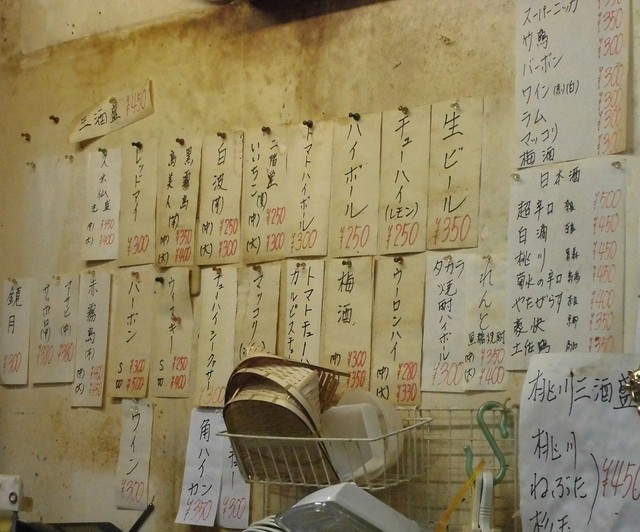 スーパーニッカ
¥350
竹鶴
¥350
バーボン
¥300
ワイン(赤)(白)
¥300
ラム
¥300
マッコリ
梅酒
三酒盛 ¥450
生ビール ¥350
チューハイ(レモン) ¥250
ハイボール ¥250
トマトハイボール ¥300
二階堂
いいちこ(中) ¥250
(大) ¥300
白波(中) ¥250
(大) ¥300
黒霧島
島美人(中) ¥350
(大) ¥400
レッドアイ ¥300
¥350
(大) ¥400
日本酒
超辛口 ¥500
白鴻 ¥450
桃川 ¥450
菊水の辛口 ¥450
やたがらす ¥400
菱快 ¥350
土佐鶴 ¥350
れんと
黒糖焼酎 ¥350
(大) ¥400
タカラ
焼酎ハイボール ¥300
ウーロンハイ
(中) ¥280
(大) ¥330
梅酒
(中) ¥300
(大) ¥350
トマトチュー
カルピスチュー
マッコリ
チューハイシークヮサー ¥300
ウイスキー
S ¥250
W ¥400
バーボン
S ¥300
W ¥500
赤霧島
(中)
(大)
アサヒ(中)
サッポロ(中)
鏡月 ¥300
ワイン ¥300
角ハイカン ¥350
¥300
桃川三酒盛
桃川
ねぶた
¥450